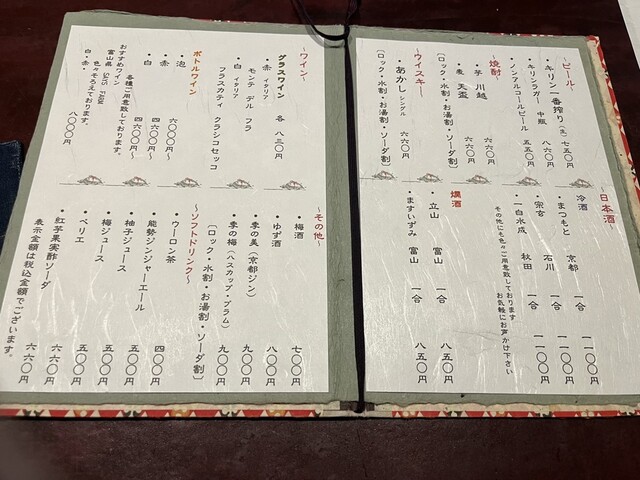 〜ビール〜
・キリン一番搾り(生) 七五〇円
・キリンラガー 中瓶 八六〇円
・ノンアルコールビール 五五〇円
〜焼酎〜
・芋 川越 六六〇円
・麦 天盃 六六〇円
〔ロック・水割・お湯割・ソーダ割〕
〜ウイスキー〜
・あかし シングル 六六〇円
〔ロック・水割・お湯割・ソーダ割〕
〜日本酒〜
冷酒
・まつもと 京都 一合 一一〇〇円
・宗玄 石川 一合 一一〇〇円
・一白水成 秋田 一合 一一〇〇円
その他にも色々ご用意致しております
お気軽にお声かけ下さい
燗酒
・立山 富山 一合 八五〇円
・ますいずみ 富山 一合 八五〇円
〜ワイン〜
グラスワイン 各 八三〇円
・赤 イタリア
モンテ デル フラ
・白 イタリア
フラスカティ クラシコセッコ
ボトルワイン
・泡 六〇〇〇円〜
・赤 四六〇〇円〜
・白 四六〇〇円〜
各種ご用意致しております。
おすすめワイン
富山県 SAYS FARM
色々そろえております。
白・赤・ 八〇〇〇円
〜その他〜
・梅酒 七〇〇円
・ゆず酒 八〇〇円
・季の美(京都ジン) 九〇〇円
・季の梅(ハスカップ・プラム) 九〇〇円
〔ロック・水割・お湯割・ソーダ割〕
〜ソフトドリンク〜
・ウーロン茶 四〇〇円
・能勢ジンジャーエール 五五〇円
・柚子ジュース 五〇〇円
・梅ジュース 五〇〇円
・ペリエ 五〇〇円
・紅芋果実酢ソーダ 六六〇円
表示金額は税込金額でございます。